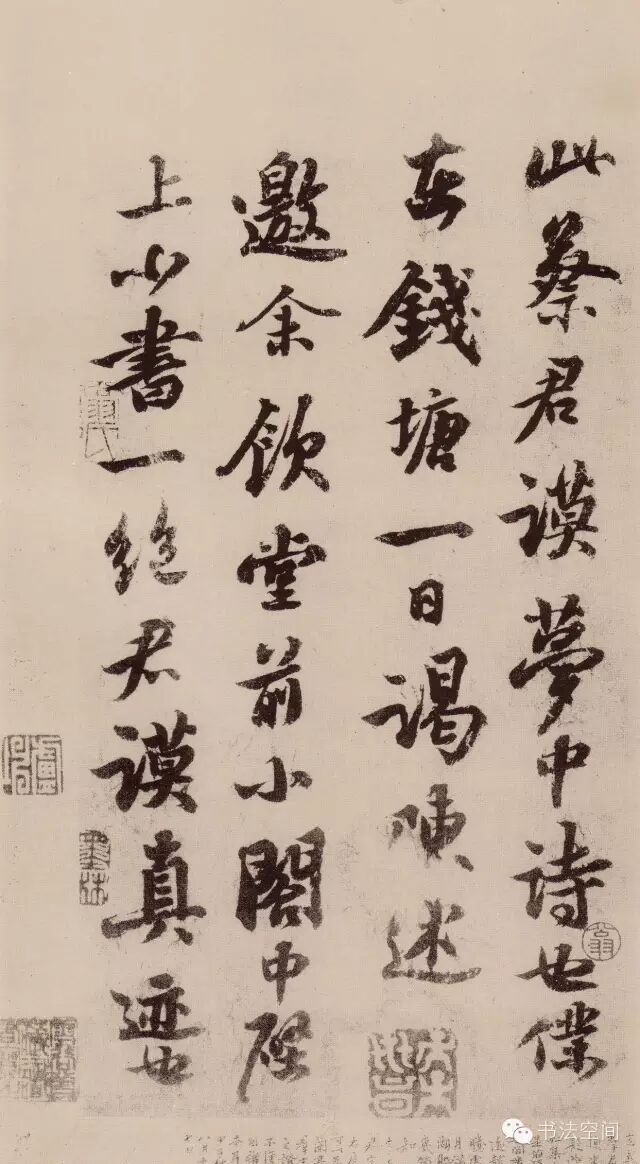 此蔡君謨夢中詩也僕
在錢塘一日謁陳述
邀余飲堂前小閣中壁
上小書一絕君謨真迹也
书法空间